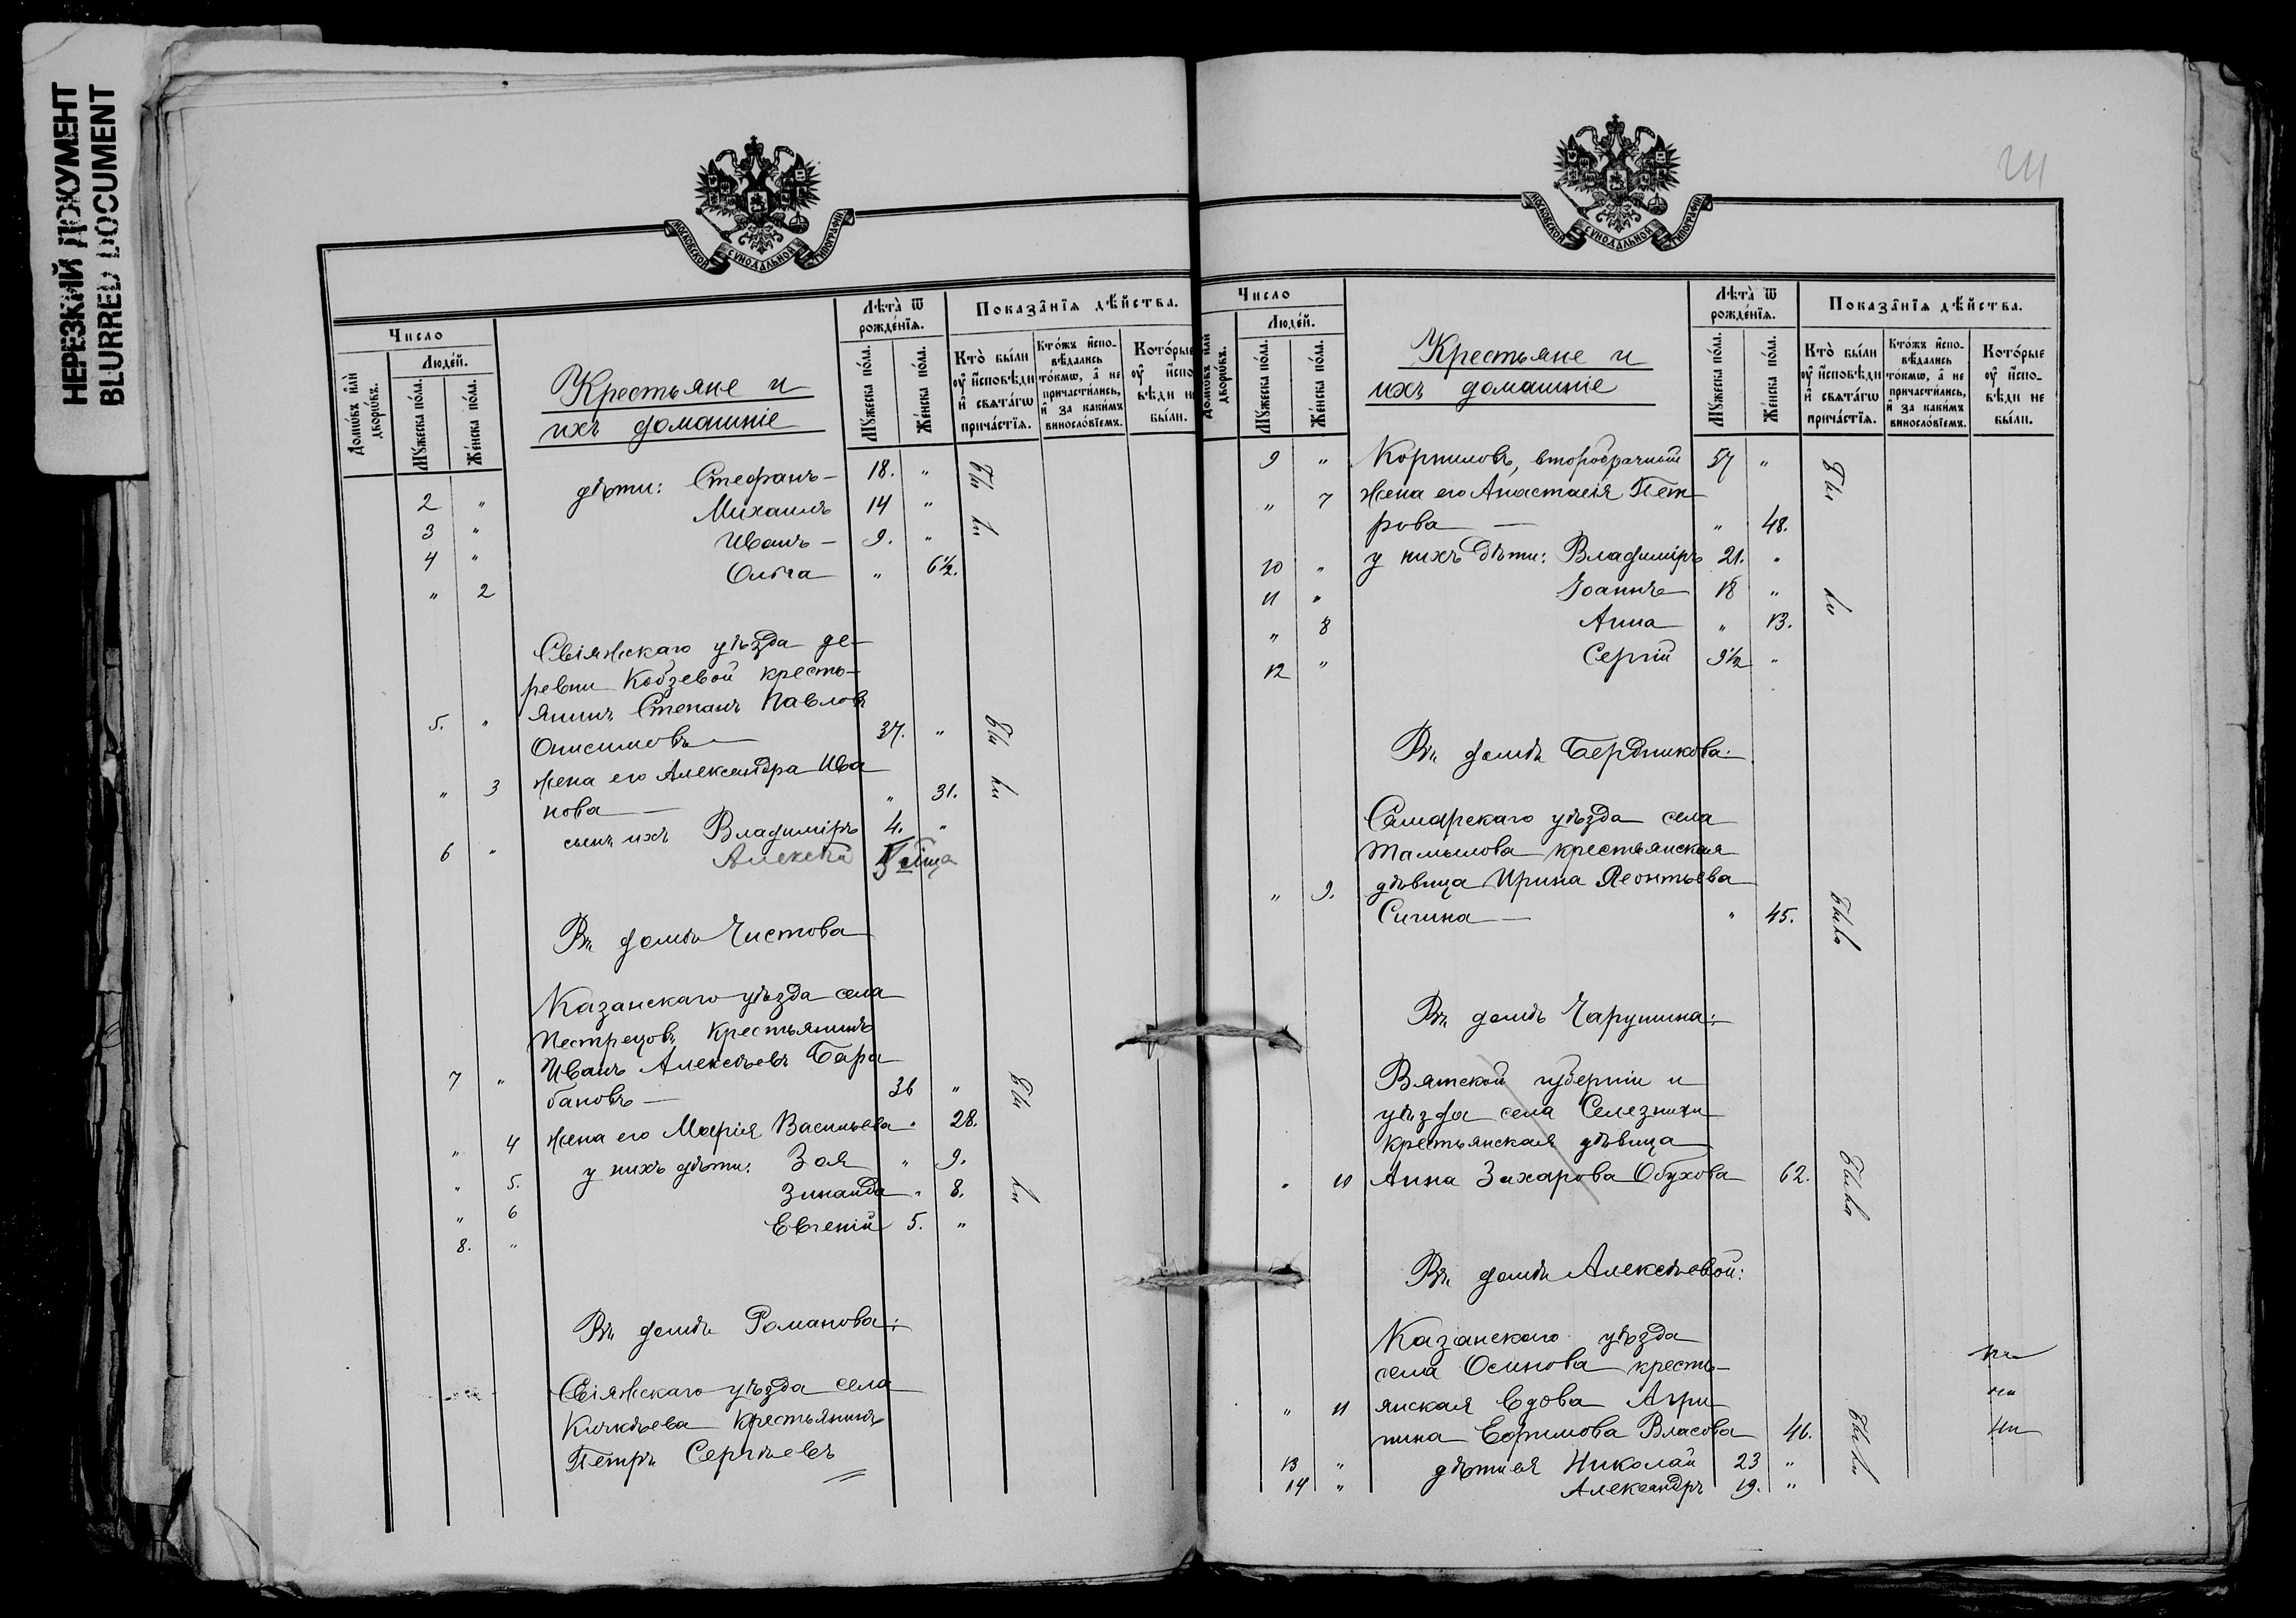 НЕРЕЗКИЙ ДОКУМЕНТ
BLURRED DOCUMENT
МОСКОВСКОЙ СѴНОДАЛЬНОЙ ТИПОГРАФІИ
Число
Людей.
Домѡвъ или дворѡвъ.
Мужеска пола.
Женска пола.
Крестьяне и
ихъ домашніе
Лѣта ѿ рожденїѧ.
Мужеска пола.
Женска пола.
Показанїѧ дѣйства.
Кто были оу исповѣди и свѧтагѡ причастїѧ.
Ктожъ исповѣдались токмѡ, а не причастились, и за какимъ винословїемъ.
Которые оу испо вѣди не были.
2 " дѣти: Стефанъ - 18. " Бы
3 " Михаилъ 14 "
4 " Иванъ - 9. " ли
" 2 Ольга " 6½.
Свіяжскаго уѣзда де-
ревни Кобзевой кресть-
5. " янинъ Степанъ Павловъ
Онисимовъ 37. " Бы
" 3 жена его Александра Ива
нова " 31. ли
6 " сынъ ихъ Владиміръ 4. "
Алексѣй
Въ домѣ Чистова
Казанскаго уѣзда села
Пестрецовъ крестьянинъ
7 " Иванъ Алексѣевъ Бара
бановъ - 36 " Бы
" 4 жена его Марія Васильева " 28.
" 5. у нихъ дѣти: Зоя " 9.
" 6 Зинаида " 8. ли
8. " Евгеній 5. "
Въ домѣ Романова:
Свіяжскаго уѣзда села
Кильдѣева крестьянинъ
Петръ Сергѣевъ
МОСКОВСКОЙ СѴНОДАЛЬНОЙ ТИПОГРАФІИ
Число
Людей.
Домѡвъ или дворѡвъ.
Мужеска пола.
Женска пола.
Крестьяне и
ихъ домашніе
Лѣта ѿ рожденїѧ.
Мужеска пола.
Женска пола.
Показанїѧ дѣйства.
Кто были оу исповѣди и свѧтагѡ причастїѧ.
Ктожъ исповѣдались токмѡ, а не причастились, и за какимъ винословїемъ.
Которые оу испо- вѣди не были.
9 " Корниловъ, второбрачный 57 " Бы
" 7 жена его Анастасія Пет
рова - " 48.
10 " у нихъ дѣти: Владиміръ 21. "
11 " Іоаннъ 18 " ли
" 8 Анна " 13.
12 " Сергій 9½ "
Въ домѣ Бердникова:
Самарскаго уѣзда села
Томылова крестьянская
" 9. дѣвица Ирина Леонтьева
Сигина - " 45. была
Въ домѣ Чарушина:
Вятской губерніи и
уѣзда села Селезнихи
крестьянская дѣвица
" 10 Анна Захарова Обухова 62. была
Въ домѣ Алексѣевой:
Казанскаго уѣзда
села Осинова кресть-
" 11 янская вдова Агри
пина Ефимова Власова 46. были
13 " дѣти ея Николай 23 "
14 " Александръ 19. "